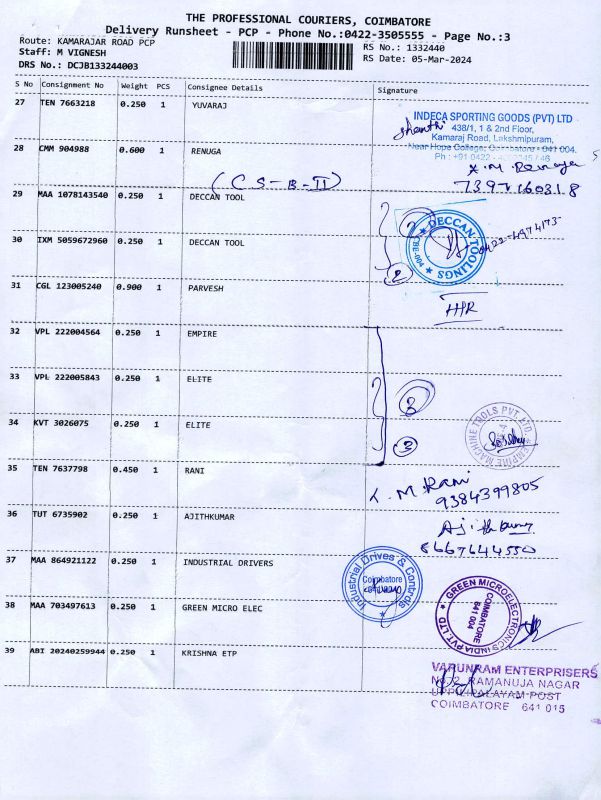 THE PROFESSIONAL COURIERS, COIMBATORE
Delivery Runsheet - PCP - Phone No.:0422-3505555 - Page No.:3
Route: KAMARAJAR ROAD PCP
RS No.: 1332440
Staff: M VIGNESH
RS Date: 05-Mar-2024
DRS No.: DCJB133244003
S No Consignment No Weight PCS Consignee Details Signature
27 TEN 7663218 0.250 1 YUVARAJ
INDECA SPORTING GOODS (PVT) LTD
438/1, 1 & 2nd Floor,
Kamaraj Road, Lakshmipuram,
Near Hope College, Coimbatore - 641 004.
Ph : +91 0422
Shanthi
28 CMM 904988 0.600 1 RENUGA
X. M. Renuga
(CS-B-II)
29 MAA 1078143540 0.250 1 DECCAN TOOL
DECCAN TOOLINGS
CBE-004
30 IXM 5059672960 0.250 1 DECCAN TOOL
2
31 CGL 123005240 0.900 1 PARVESH
32 VPL 222004564 0.250 1 EMPIRE
33 VPL 222005843 0.250 1 ELITE
3
34 KVT 3026075 0.250 1 ELITE
3
EMPIRE MACHINE TOOLS PVT. LTD.
35 TEN 7637798 0.450 1 RANI
M. Rani
9384399805
36 TUT 6735902 0.250 1 AJITHKUMAR
Ajithkumar
8667644550
37 MAA 864921122 0.250 1 INDUSTRIAL DRIVERS
Industrial Drives & Controls
Coimbatore
38 MAA 703497613 0.250 1 GREEN MICRO ELEC
GREEN MICROELECTRONICS INDIA PVT LTD
COIMBATORE
641 004
39 ABI 20240259944 0.250 1 KRISHNA ETP
VARUNRAM ENTERPRISERS
NO:72, RAMANUJA NAGAR
UPPILIPALAYAM POST
COIMBATORE 641 015